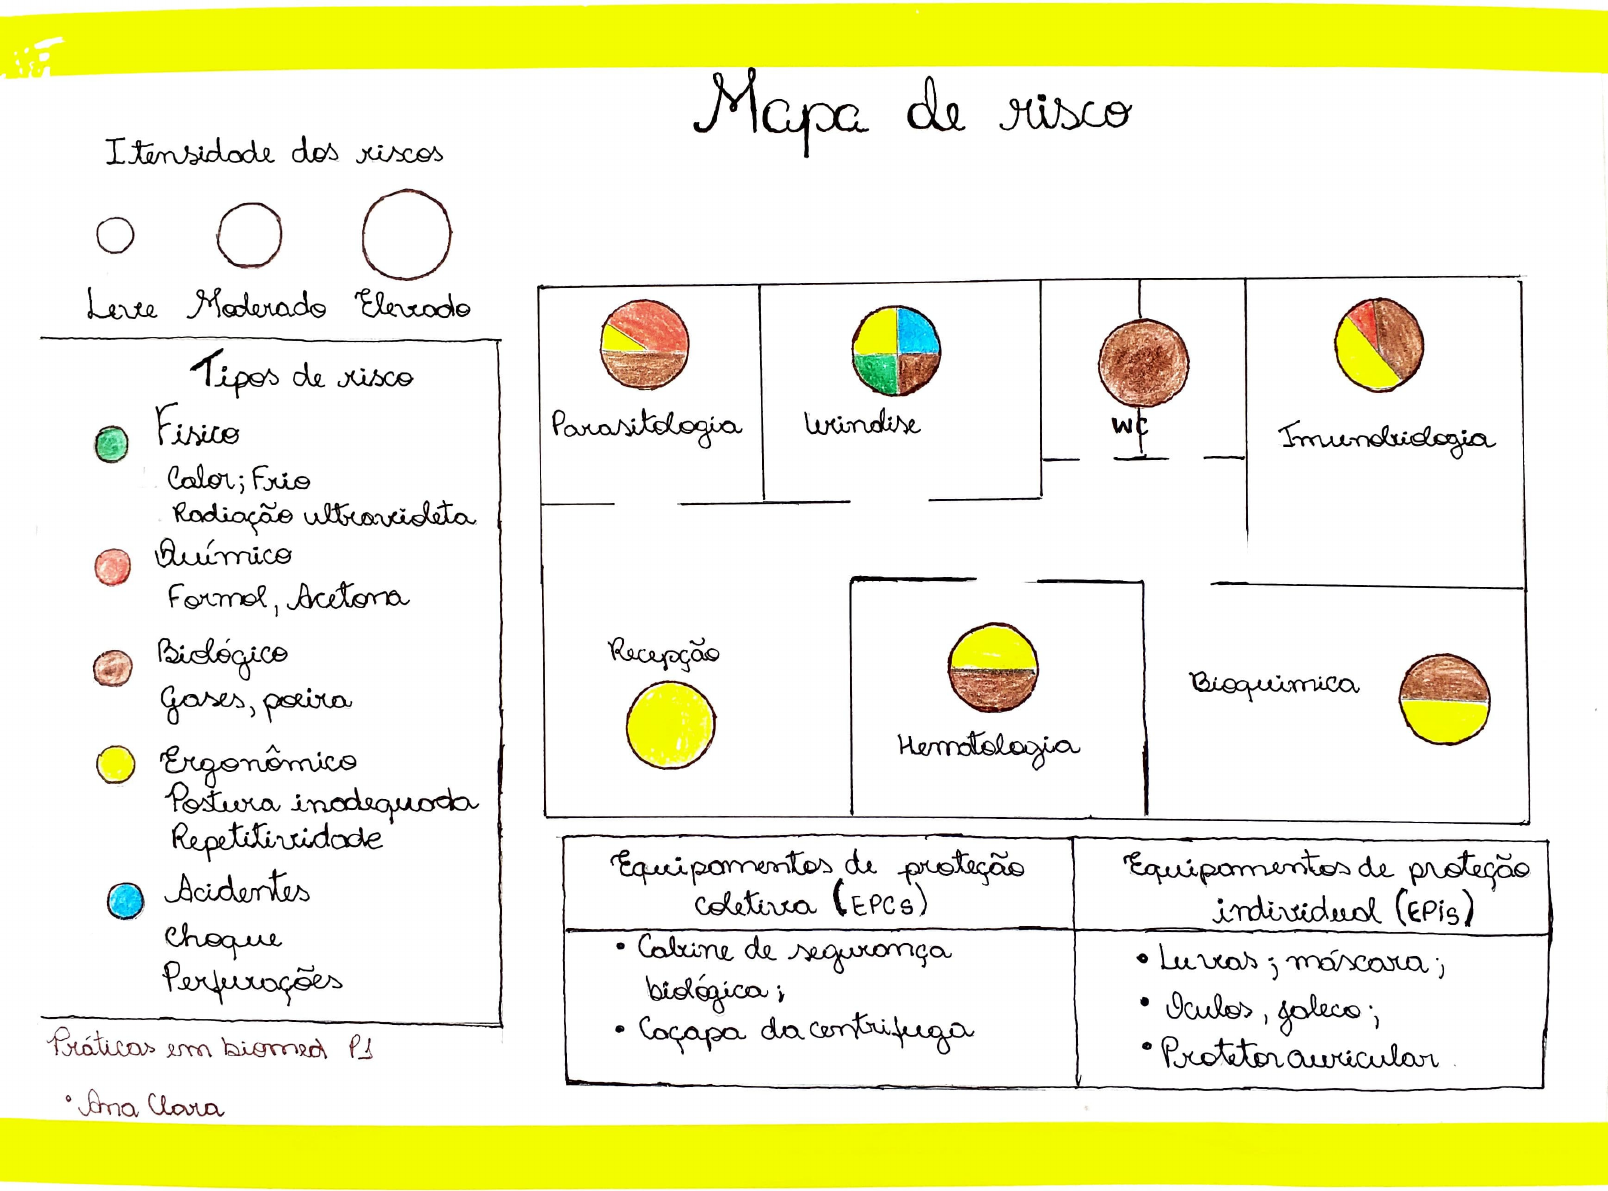 Mapa de risco
Itensidade dos riscos
Leve Moderado Elevado
Tipos de risco
Físico
Calor; Frio
Radiação ultravioleta
Químico
Formol, Acetona
Biológico
Gases, poeira
Ergonômico
Postura inadequada
Repetitividade
Acidentes
Choque
Perfurações
Práticas em biomed P1
• Ana Clara
Parasitologia
Urinálise
WC
Imunobiologia
Recepção
Hematologia
Bioquimica
Equipamentos de proteção
coletiva (EPCs)
• Cabine de segurança
biológica;
• Caçapa da centrifuga
Equipamentos de proteção
individual (EPis)
• Luvas; máscara;
• Oculos, jaleco;
• Protetor auricular.